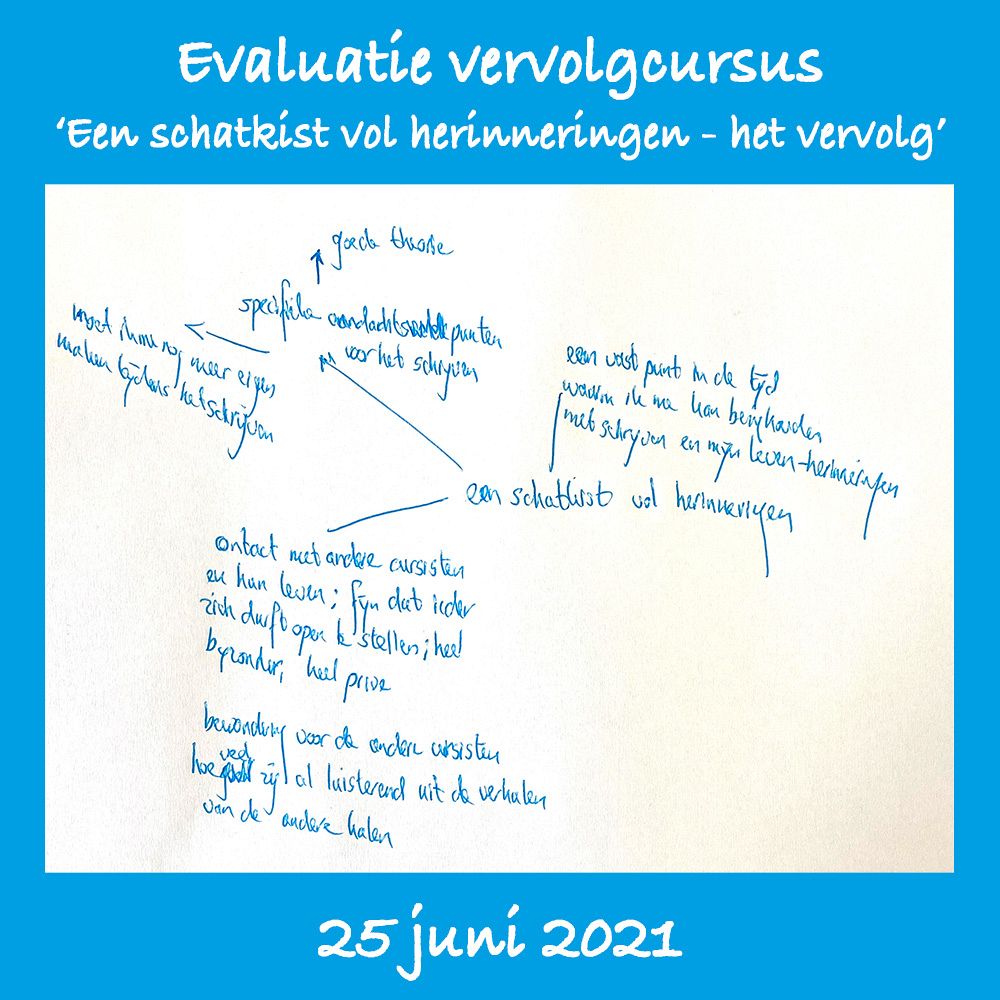 Evaluatie vervolgcursus
‘Een schatkist vol herinneringen - het vervolg’
goede theorie
specifieke aandachtspunten
voor het schrijven
moet ik me nog meer eigen
maken tijdens het schrijven
een vast punt in de tijd
waarin ik me kan bezighouden
met schrijven en mijn leven-herinneringen
een schatkist vol herinneringen
contact met andere cursisten
en hun leven; fijn dat ieder
zich durft open te stellen; heel
byzonder, heel prive
bewondering voor de andere cursisten
hoe veel zij al luisterend uit de verhalen
van de andere halen
25 juni 2021